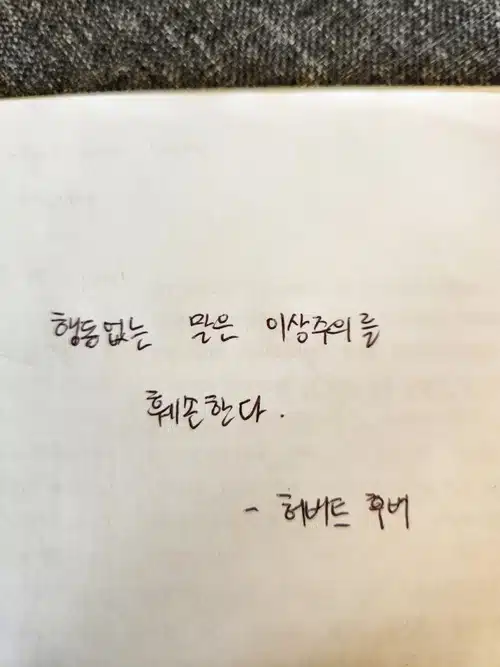 행동없는 말은 이상주의를
훼손한다.
- 허버트 후버